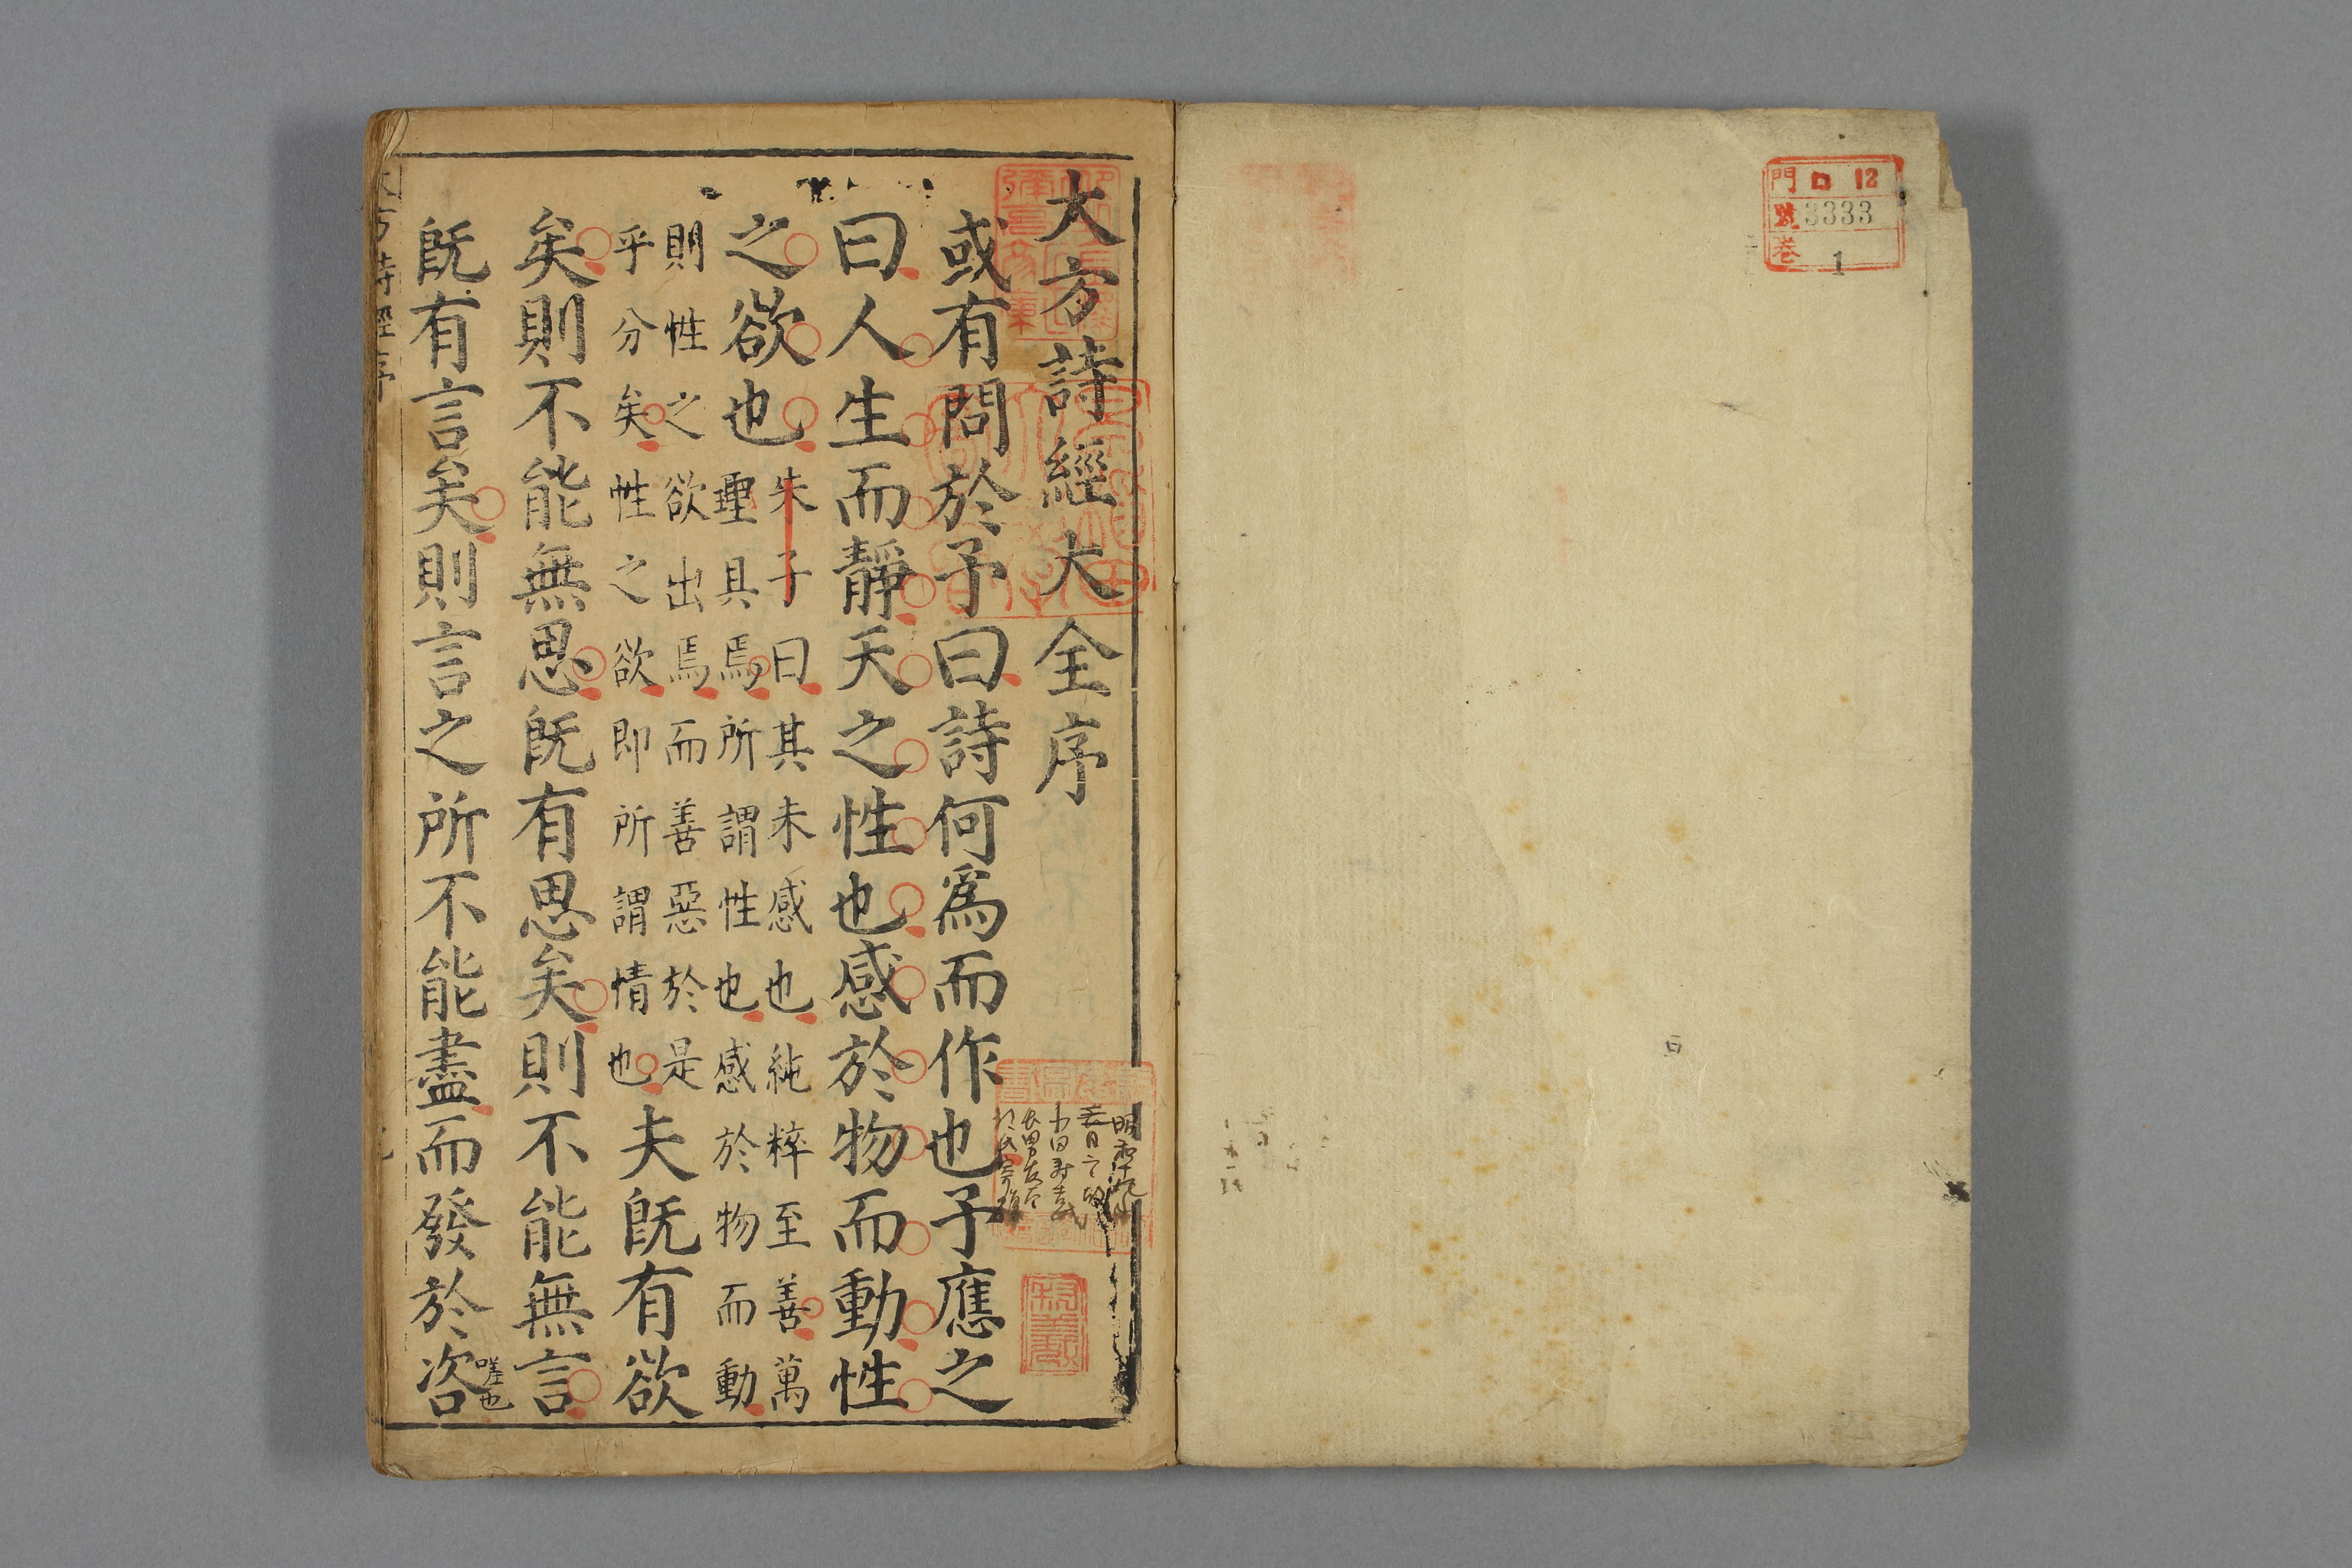 門 ロ 12
號 3333
卷 1
大方詩經大全序
或有問於予曰詩何爲而作也予應之
曰人生而靜天之性也感於物而動性
之欲也
朱子曰其未感也純粹至善萬
理具焉所謂性也感於物而動
則性之欲出焉而善惡於是
乎分矣性之欲即所謂情也
夫旣有欲
矣則不能無思旣有思矣則不能無言
旣有言矣則言之所不能盡而發於咨
嗟也